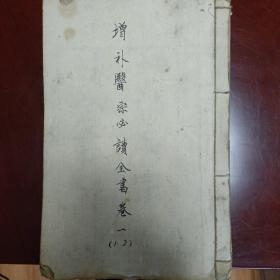 增补醫宗必讀全書卷一
(1.2)